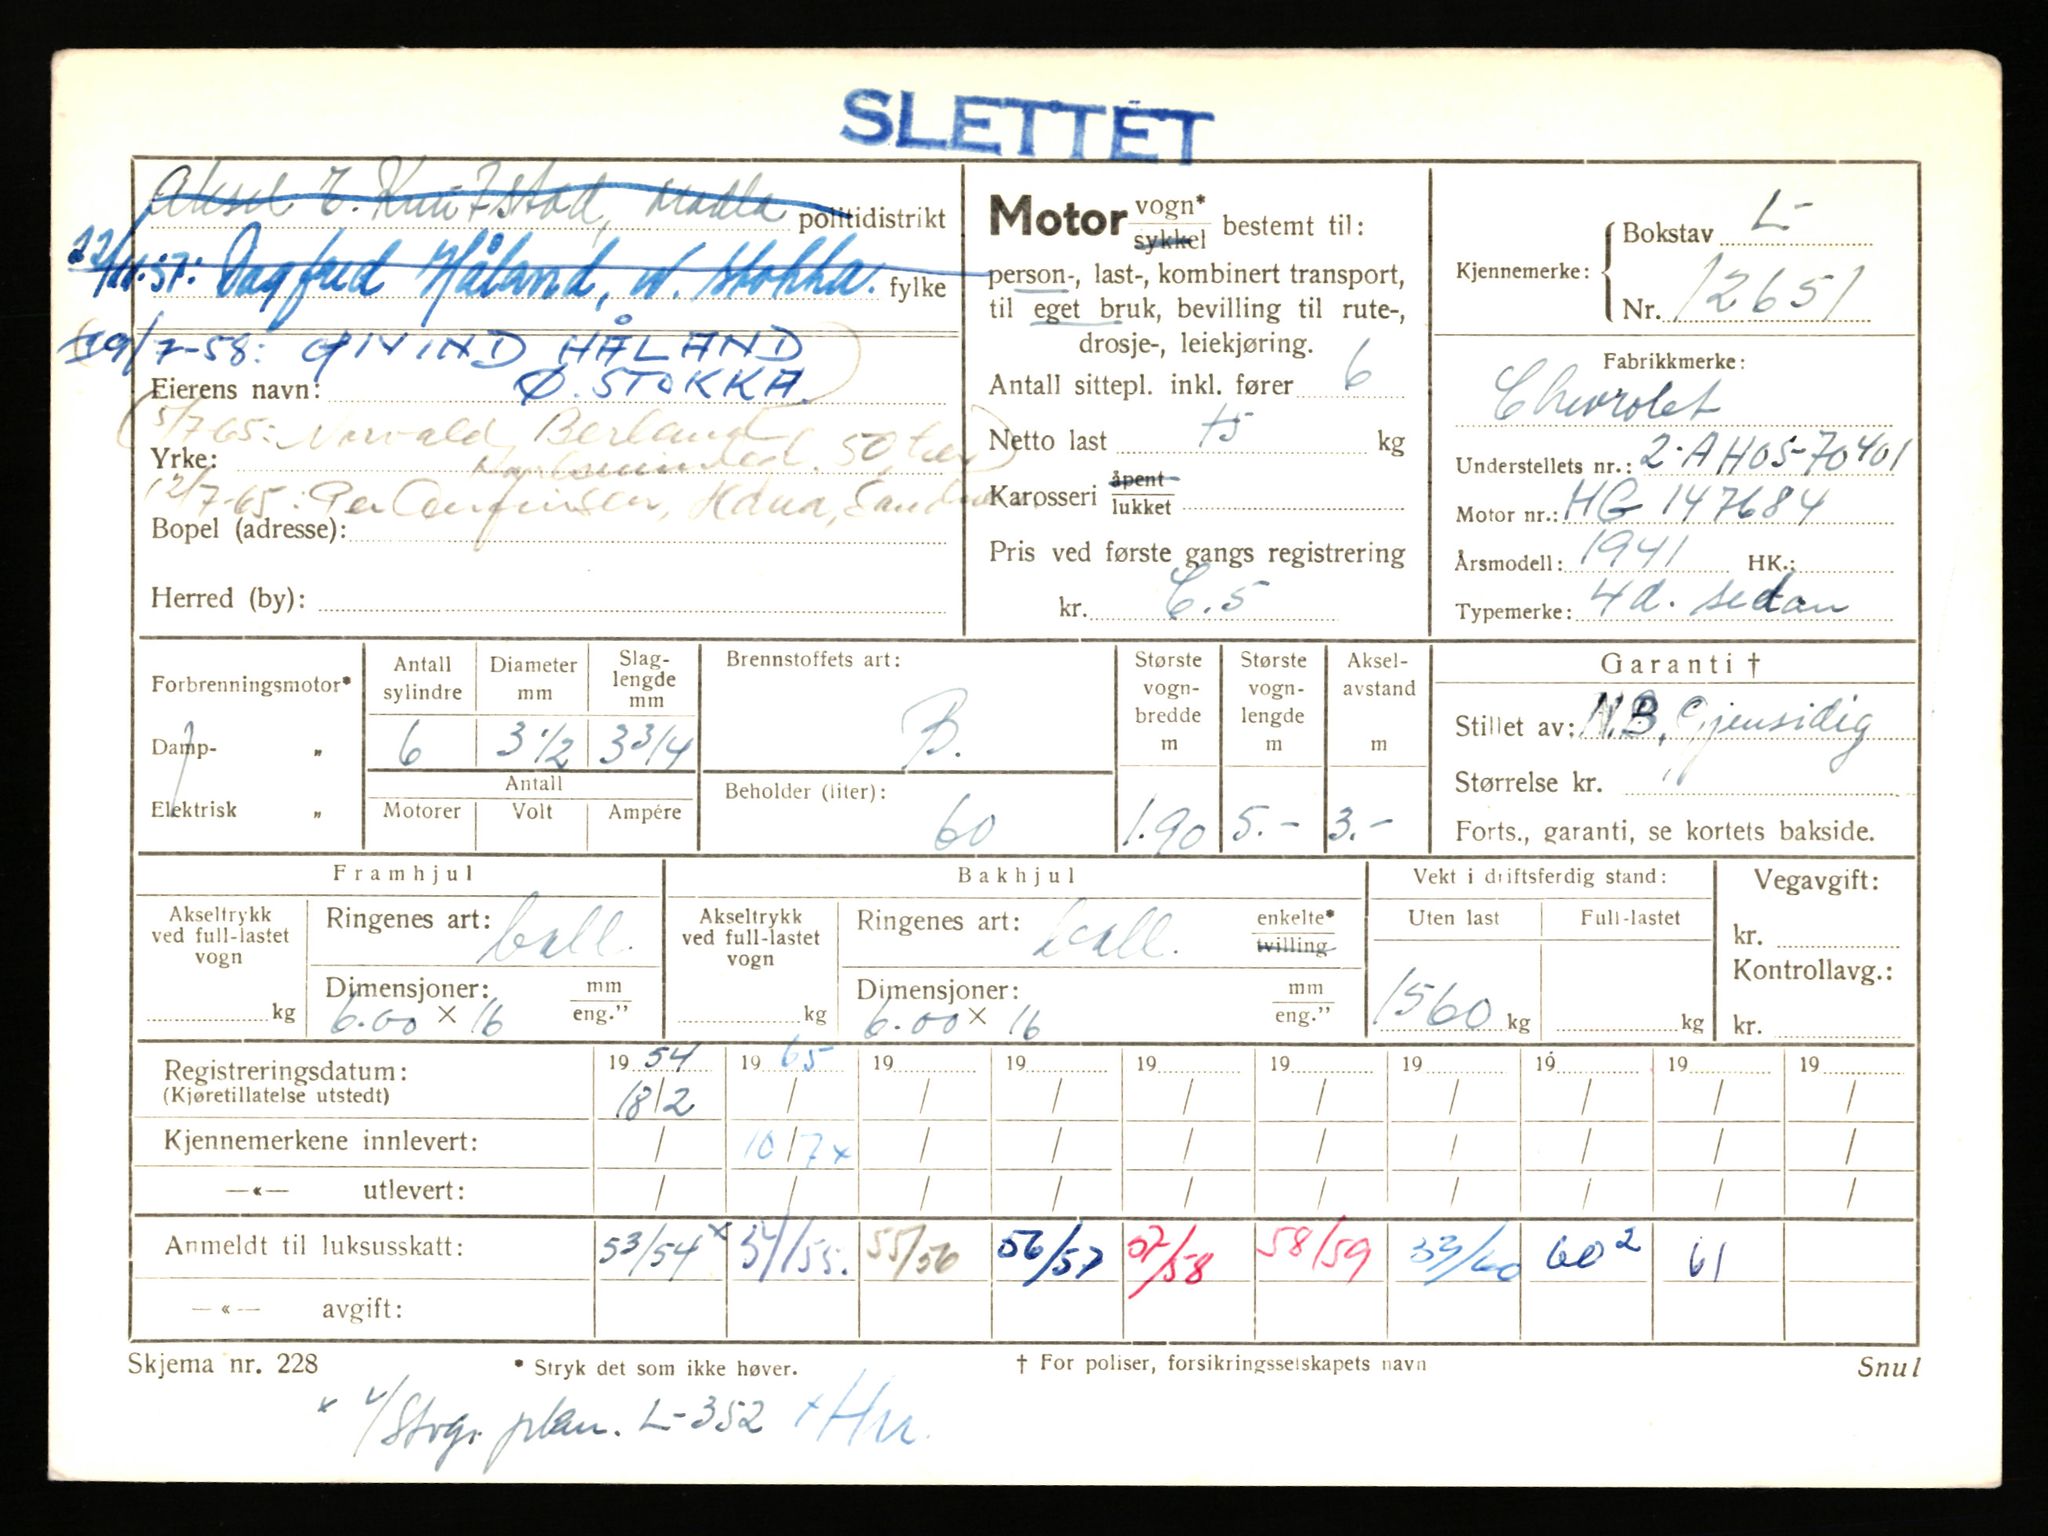 SLETTET
Aksel politidistrikt
Dagfred Håland, V. Stokka. fylke
19/7-58: ØIVIND HÅLAND
Eierens navn: Ø. STOKKA.
5/7-65: Norvald Berland
Yrke:
12/7-65: Per Hana,
Bopel (adresse):
Herred (by):
Motor vogn* sykkel bestemt til:
person-, last-, kombinert transport,
til eget bruk, bevilling til rute-,
drosje-, leiekjøring.
Antall sittepl. inkl. fører 6
Netto last +5 kg
Karosseri åpent lukket
Pris ved første gangs registrering
kr. C.5
Kjennemerke: Bokstav L-
Nr. 12651
Fabrikkmerke:
Chevrolet
Understellets nr.: 2-AH05-70401
Motor nr.: HG 147684
Årsmodell: 1941 HK.:
Typemerke: 4d. sedan
Forbrenningsmotor*
Damp- „
Elektrisk „
Antall sylindre Diameter mm Slaglengde mm
6 3 1/2 3 3/4
Antall
Motorer Volt Ampére
Brennstoffets art:
B.
Beholder (liter):
60
Største vognbredde m Største vognlengde m Akselavstand m
1.90 5.- 3.-
Garanti †
Stillet av: N.B. Gjensidig
Størrelse kr.
Forts., garanti, se kortets bakside.
Framhjul
Akseltrykk ved full-lastet vogn
kg
Ringenes art: ball.
Dimensjoner: mm eng.”
6.00 × 16
Bakhjul
Akseltrykk ved full-lastet vogn
kg
Ringenes art: ball. enkelte* tvilling
Dimensjoner: mm eng.”
6.00 × 16
Vekt i driftsferdig stand:
Uten last Full-lastet
1560 kg kg
Vegavgift:
kr.
Kontrollavg.:
kr.
Registreringsdatum: 19 54 19 65 19 19 19 19 19 19 19 19
(Kjøretillatelse utstedt) 18/2 / / / / / / / / /
Kjennemerkene innlevert: / 10/7 x / / / / / / / /
—«— utlevert: / / / / / / / / / /
Anmeldt til luksusskatt: 53/54 x 54/55. 55/56 56/57 57/58 58/59 59/60 60 2 61
—«— avgift:
Skjema nr. 228 * Stryk det som ikke høver. † For poliser, forsikringsselskapets navn Snul
* plan. L-352